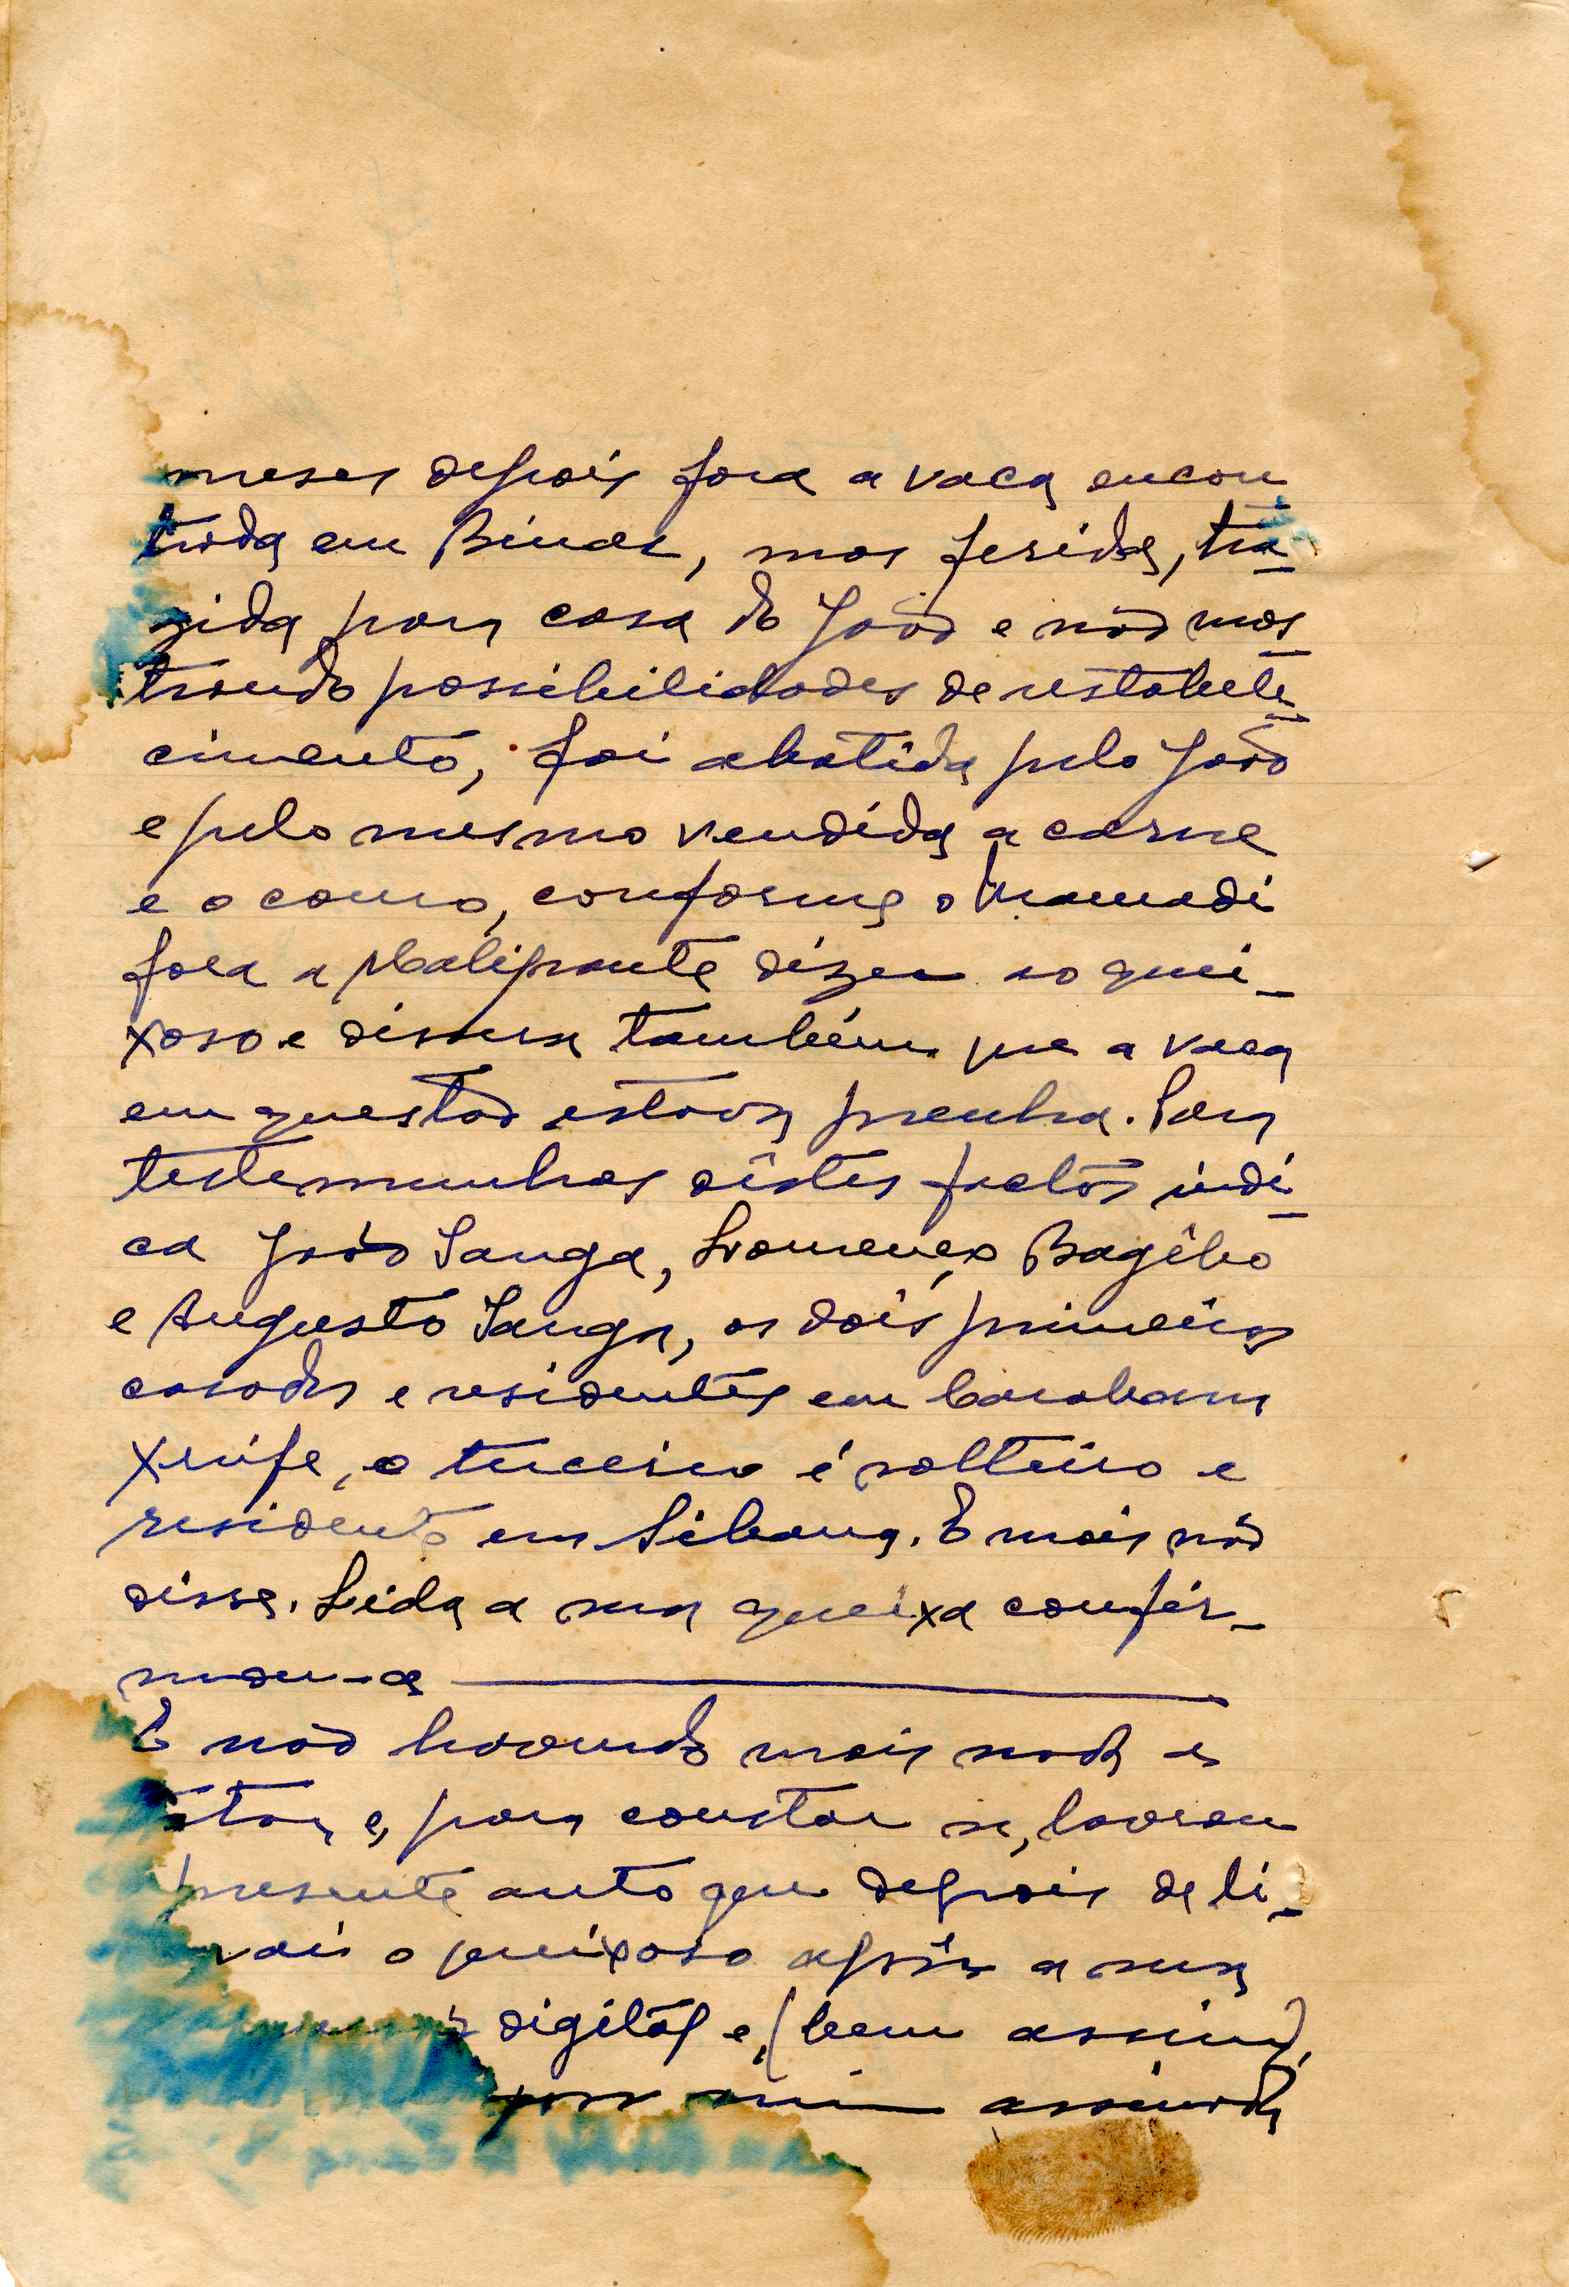 meses depois fora a vaca encon
trada em Binar, mas ferida, tra
zida para casa do João e não mos
trando possibilidades de restabele
cimento, foi abatida pelo João
e pelo mesmo vendida a carne
e o couro, conforme o Mamadi
fora a dizer ao quei-
xoso e dissera também que a vaca
em questão estava prenha. Para
testemunhas dêstes factos indi
ca João Sanga, Lourenço Bagêho
e Augusto Sanga, os dois primeiros
casados e residentes em
xerife, o terceiro é solteiro e
residente em . E mais não
disse. Lida a sua queixa confir-
mou-a
E não havendo mais nada a
e, para constar se, lavrou
presente auto que depois de li
vai o queixoso apôr a sua
digital e, (bem assim),
por mim assinado